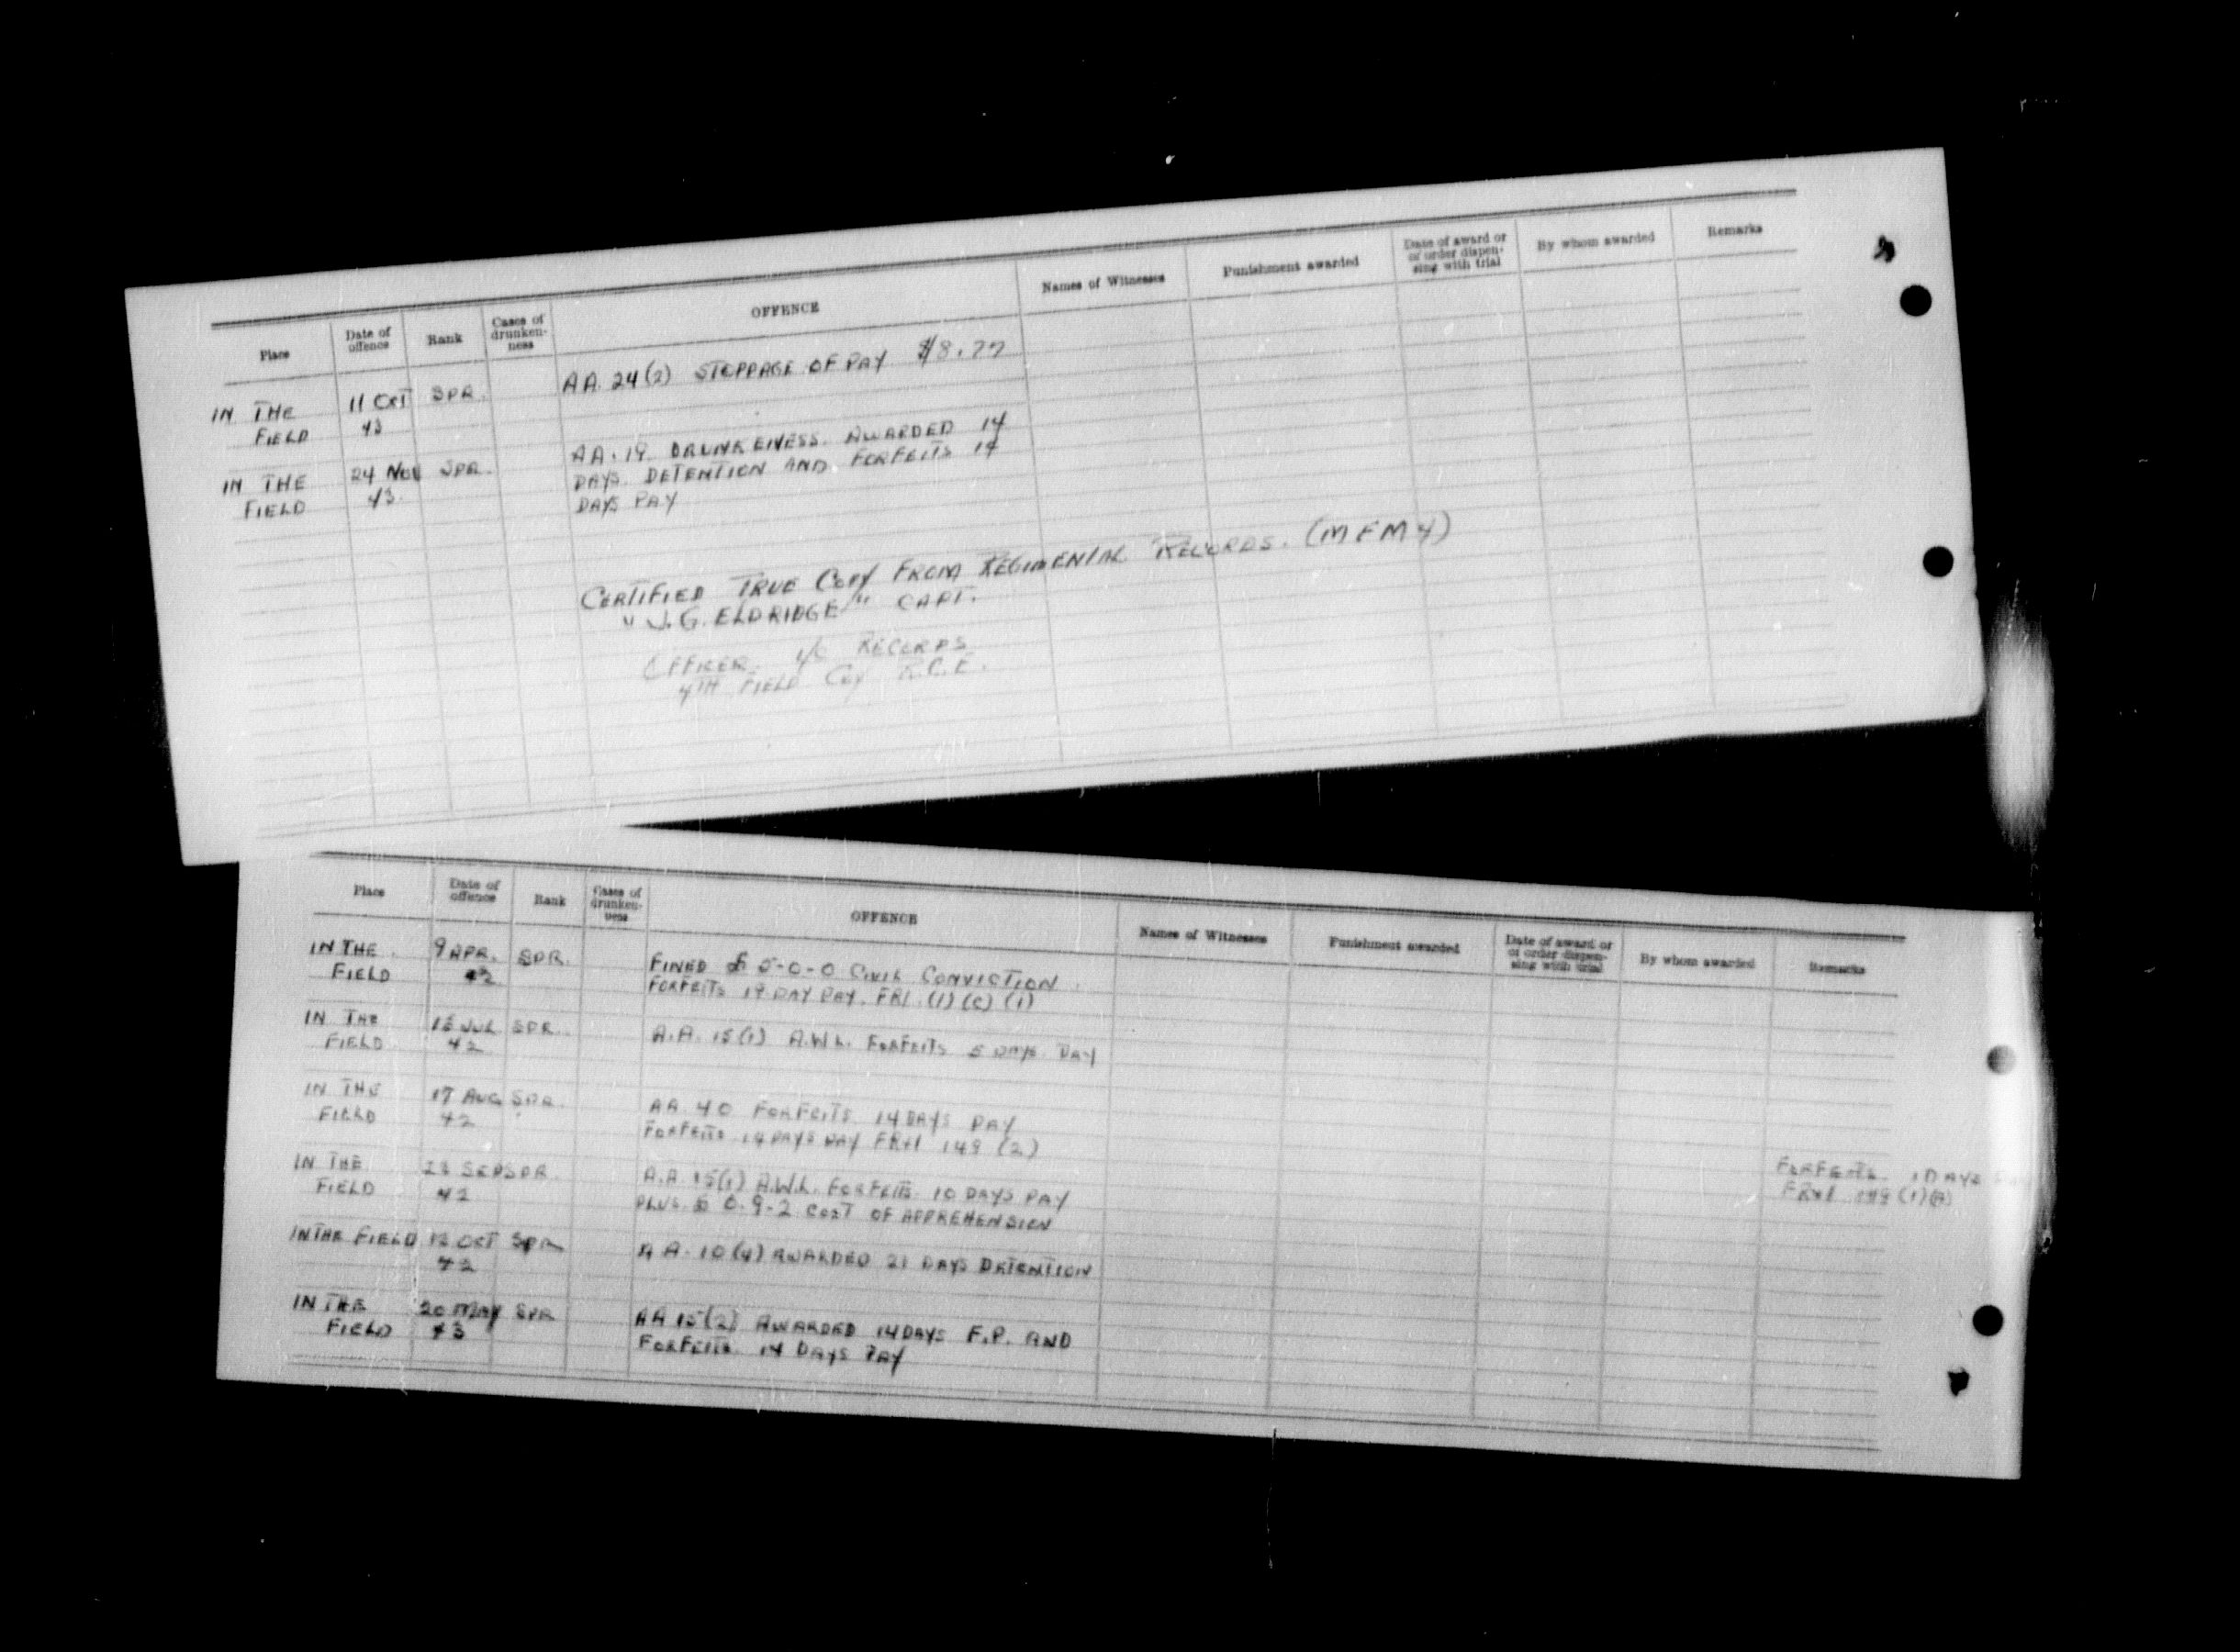 Place
Date of offence
Rank
Cases of drunken-ness
OFFENCE
Names of Witnesses
Punishment awarded
Date of award or of order dispen-sing with trial
By whom awarded
Remarks
IN THE 11 OCT SPR. AA. 24(2) STOPPAGE OF PAY
FIELD 43
IN THE 24 NOV SPR. AA. 19. DRUNKENESS. AWARDED 14
FIELD 43. DAYS. DETENTION AND. FORFEITS 14
DAYS PAY
CERTIFIED TRUE COPY FROM REGIMENTAL RECORDS. (MFM4)
"J.G. ELDRIDGE" CAPT.
OFFICER. I/C RECORDS
4TH FIELD COY R.C.E.
Place
Date of offence
Rank
Cases of drunken-ness
OFFENCE
Names of Witnesses
Punishment awarded
Date of award or of order dispen-sing with trial
By whom awarded
Remarks
IN THE 9 APR. SPR. FINED £ 5-0-0 CIVIL CONVICTION.
FIELD 42 FORFEITS DAY PAY. (1) (C) (1)
IN THE JUL SPR. A.A. 15(1) A.W.L. FORFEITS 5 DAYS PAY
FIELD 42
IN THE 17 AUG SPR. AA. 40 FORFEITS 14 DAYS PAY
FIELD 42 FORFEITS 14 DAYS PAY FR&I 149 (2)
IN THE SEP SPR. A.A. 15(1) A.W.L. FORFEITS 10 DAYS PAY FORFEITS DAYS
FIELD 42 PLUS £ 0-9-2 COST OF APPREHENSION FR&I
IN THE FIELD OCT SPR A A. 10(4) AWARDED 21 DAYS DETENTION
42
IN THE 20 MAY SPR AA 15(2) AWARDED 14 DAYS F.P. AND
FIELD 43 FORFEITS 14 DAYS PAY